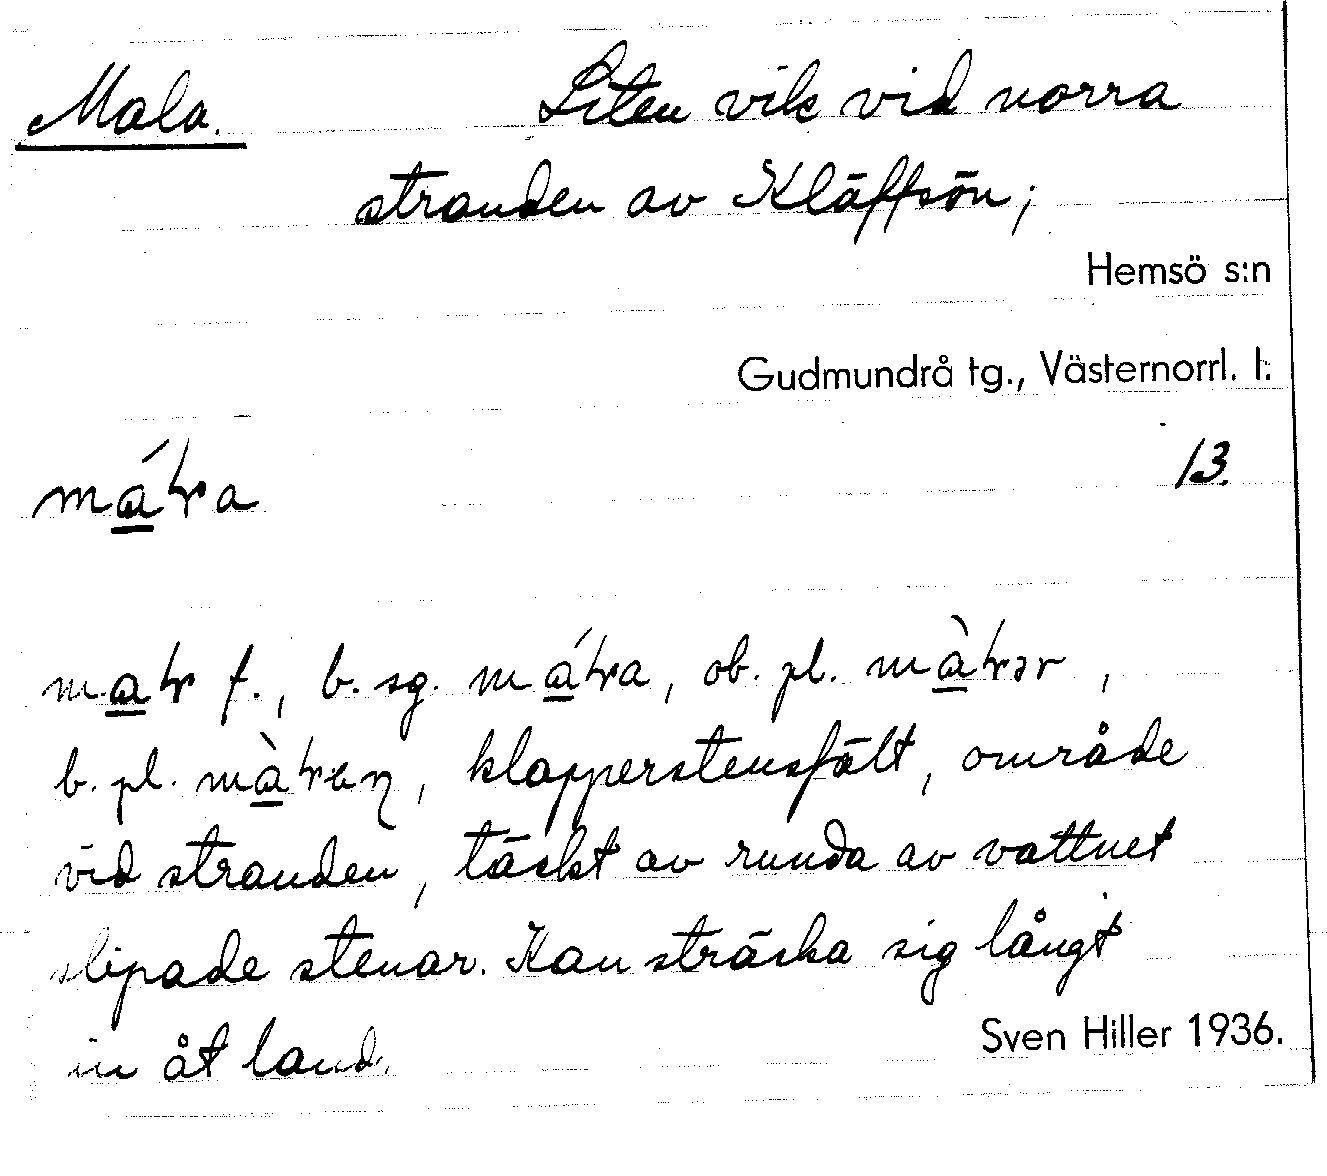 Mala. Liten vik vid norra
stranden av Kläffsön;
Hemsö s:n
Gudmundrå tg., Västernorrl. l.
13.
b. sg. ob. pl.
b. pl. klapperstensfält, område
vid stranden, täckt av runda av vattnet
slipade stenar. Kan sträcka sig långt
in åt land.
Sven Hiller 1936.